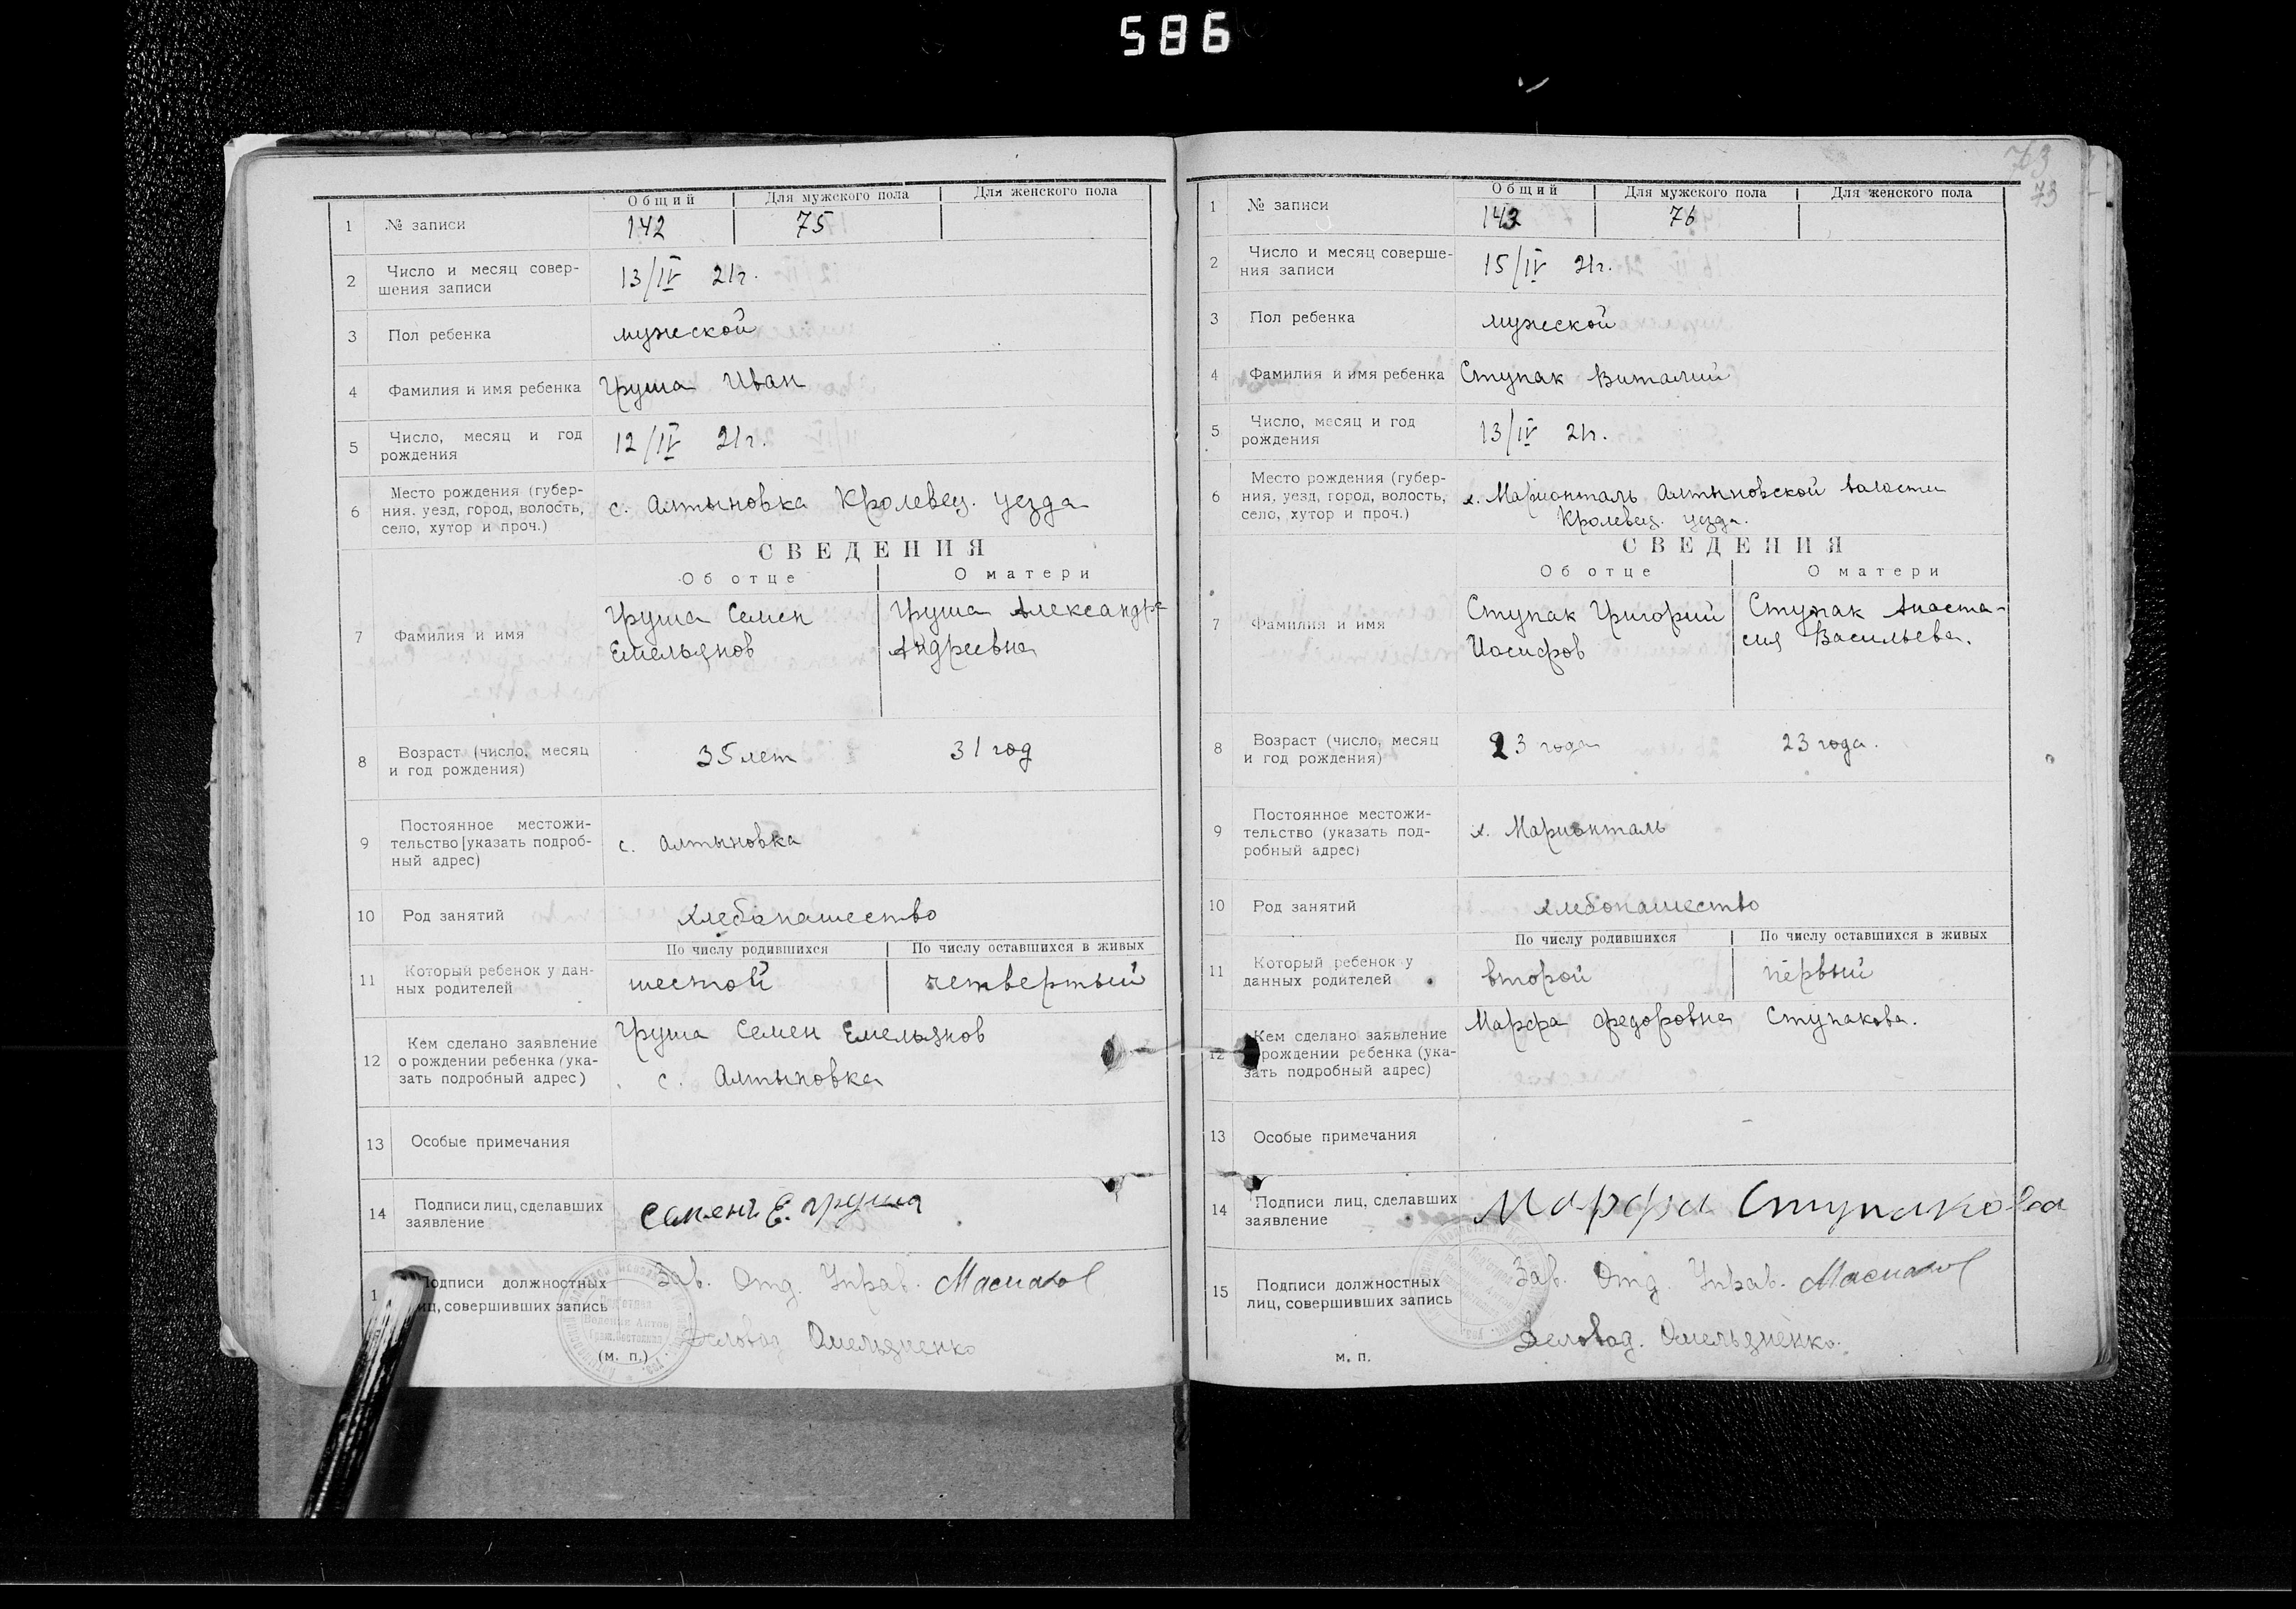 586
Общий Для мужского пола Для женского пола
1 № записи 142 75
2 Число и месяц совер-
шения записи 13/IV 21г.
3 Пол ребенка мужеской
4 Фамилия и имя ребенка Груша Иван
5 Число, месяц и год
рождения 12/IV 21г.
6 Место рождения (губер-
ния, уезд, город, волость,
село, хутор и проч.) с. Алтыновка Кролевец. уезда
СВЕДЕНИЯ
Об отце О матери
7 Фамилия и имя
Груша Семен
Емельянов
Груша Александра
Андреевна
8 Возраст (число, месяц
и год рождения) 35 лет 31 год
9 Постоянное местожи-
тельство (указать подроб-
ный адрес) с. Алтыновка
10 Род занятий хлебопашество
По числу родившихся По числу оставшихся в живых
11 Который ребенок у дан-
ных родителей шестой четвертый
12 Кем сделано заявление
о рождении ребенка (ука-
зать подробный адрес)
Груша Семен Емельянов
с. Алтыновка
13 Особые примечания
14 Подписи лиц, сделавших
заявление Семенъ Е. Груша
1 Подписи должностных
лиц, совершивших запись
Зав. Отд. Управ.
Деловод. Омельяненко
(м. п.)
73
73
Общий Для мужского пола Для женского пола
1 № записи 143 76
2 Число и месяц соверше-
ния записи 15/IV 21г.
3 Пол ребенка мужеской
4 Фамилия и имя ребенка Ступак Виталий
5 Число, месяц и год
рождения 13/IV 21г.
6 Место рождения (губер-
ния, уезд, город, волость,
село, хутор и проч.)
х. Мариенталь Алтыновской валости
Кролевец. уезда.
СВЕДЕНИЯ
Об отце О матери
7 Фамилия и имя
Ступак Григорий
Иосифов
Ступак Анаста-
сия Васильева.
8 Возраст (число, месяц
и год рождения) 23 года 23 года.
9 Постоянное местожи-
тельство (указать под-
робный адрес) х. Мариенталь
10 Род занятий хлебопашество
По числу родившихся По числу оставшихся в живых
11 Который ребенок у
данных родителей второй первый
12 Кем сделано заявление
рождении ребенка (ука-
зать подробный адрес)
Марфа Федоровна Ступакова.
13 Особые примечания
14 Подписи лиц, сделавших
заявление Марфа Ступакова
15 Подписи должностных
лиц, совершивших запись
Зав. Отд. Управ.
Деловод. Омельяненко.
м. п.